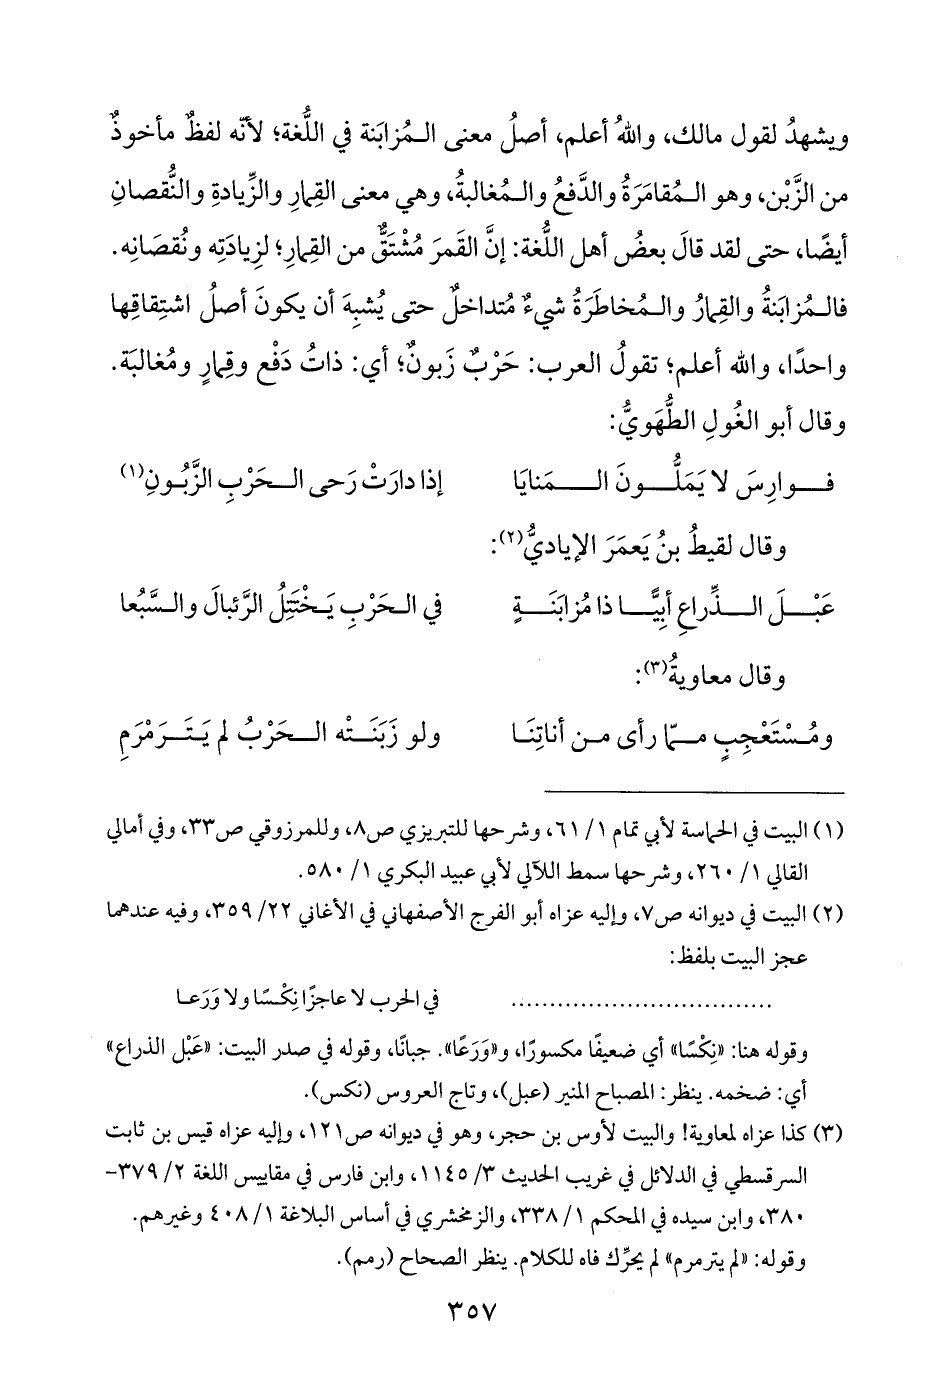 ويشهدُ لقول مالك، واللهُ أعلم، أصلُ معنى المُزابَنة في اللُّغة؛ لأنّه لفظٌ مأخوذٌ
من الزَّبْن، وهو المُقامَرَةُ والدَّفعُ والمُغالبةُ، وهي معنى القِمارِ والزِّيادةِ والنُّقصانِ
أيضًا، حتى لقد قالَ بعضُ أهل اللُّغة: إنَّ القَمرَ مُشْتَقٌّ من القِمارِ؛ لزِيادَتِه ونُقصَانِه.
فالمُزابَنةُ والقِمارُ والمُخاطَرَةُ شيءٌ مُتداخلٌ حتى يُشبِهَ أن يكونَ أصلُ اشتقاقِها
واحدًا، والله أعلم؛ تقولُ العرب: حَرْبٌ زَبونٌ؛ أي: ذاتُ دَفْعٍ وقِمارٍ ومُغالبَة.
وقال أبو الغُولِ الطُّهَويُّ:
فوارِسَ لا يَمَلُّونَ المَنايَا إذا دارَتْ رَحى الحَرْبِ الزَّبُونِ(١)
وقال لقيطُ بنُ يَعمَرَ الإياديُّ(٢):
عَبْلَ الذِّراعِ أبِيًّا ذا مُزابَنَةٍ في الحَرْبِ يَخْتَتِلُ الرَّئبالَ والسَّبُعا
وقال معاويةُ(٣):
ومُسْتَعْجِبٍ ممّا رأى من أناتِنَا ولو زَبَنَتْه الحَرْبُ لم يَتَرَمْرَمِ
(١) البيت في الحماسة لأبي تمام ١/ ٦١، وشرحها للتبريزي ص٨، وللمرزوقي ص٣٣، وفي أمالي
القالي ١/ ٢٦٠، وشرحها سمط اللآلي لأبي عبيد البكري ١/ ٥٨٠.
(٢) البيت في ديوانه ص٧، وإليه عزاه أبو الفرج الأصفهاني في الأغاني ٢٢/ ٣٥٩، وفيه عندهما
عجز البيت بلفظ:
.................................. في الحرب لا عاجزًا نِكْسًا ولا وَرَعا
وقوله هنا: «نِكْسًا» أي ضعيفًا مكسورًا، و«وَرَعًا». جبانًا، وقوله في صدر البيت: «عَبْل الذراع»
أي: ضخمه. ينظر: المصباح المنير (عبل)، وتاج العروس (نكس).
(٣) كذا عزاه لمعاوية! والبيت لأوس بن حجر، وهو في ديوانه ص١٢١، وإليه عزاه قيس بن ثابت
السرقسطي في الدلائل في غريب الحديث ٣/ ١١٤٥، وابن فارس في مقاييس اللغة ٢/ ٣٧٩-
٣٨٠، وابن سيده في المحكم ١/ ٣٣٨، والزمخشري في أساس البلاغة ١/ ٤٠٨ وغيرهم.
وقوله: «لم يترمرم» لم يحرِّك فاه للكلام. ينظر الصحاح (رمم).
٣٥٧